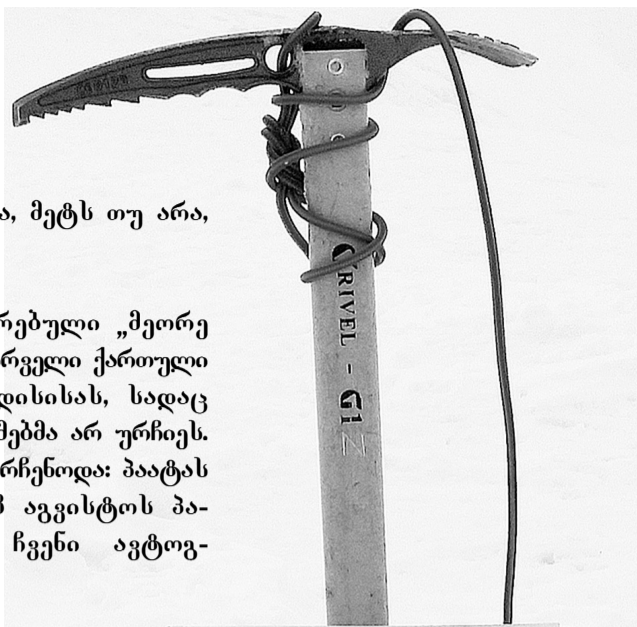 ა, მეტს თუ არა,
რებული „მეორე
რველი ქართული
დისისას, სადაც
მებმა არ ურჩიეს.
რჩენოდა: პაატას
აგვისტოს პა-
ჩვენი ავტოგ-
GRIVEL - G1